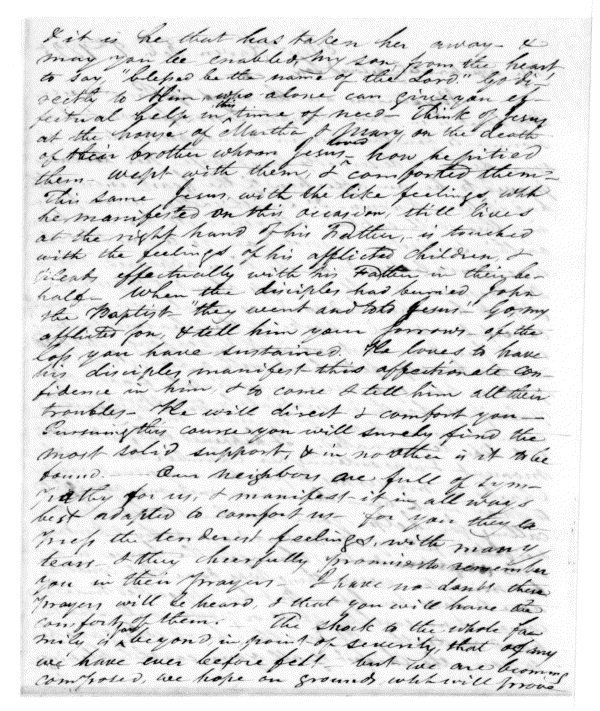 & it is he that has taken her away - &
may you be enabled, my son, from the heart
to say, "blessed be the name of the Lord." Go di-
rectly to Him who alone can give you ef-
fectual help in this time of need - Think of Jesus
at the house of Martha & Mary, on the death
of their brother whom Jesus loved - how he pitied
them - wept with them, & comforted them -
This same Jesus, with the like feelings, which
he manifested on this occasion, still lives
at the right hand of his Father, is touched
with the feelings of his afflicted children, &
pleads effectually with his Father in their be-
half - When the disciples had buried John
the Baptist "they went and told Jesus" Go, my
afflicted son, & tell him your sorrows - of the
loss you have sustained. He loves to have
his disciples manifest this affectionate con-
fidence in him, & to come & tell him all their
troubles - He will direct & comfort you -
Pursuing this course you will surely find the
most solid support, & in no other is it to be
found - Our neighbors are full of sym-
pathy for us, & manifest it in all ways
best adapted to comfort us - for you they ex
press the tenderest feelings, with many
tears - & they cheerfully promise to remember
you in their prayers. I have no doubt these
prayers will be heard, & that you will have the
comfort of them. The shock to the whole fa-
mily is far beyond in point of severity, that of any
we have ever before felt - but we are becoming
composed, we hope on grounds which will prove